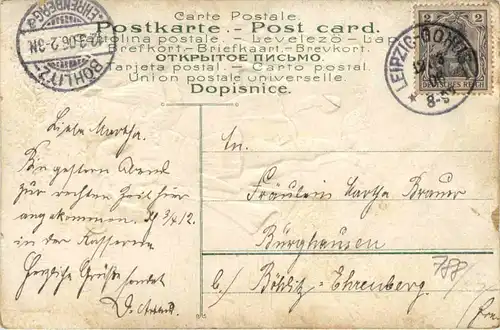 Carte Postale.
Postkarte. - Post card.
Cartolina postale. - Levelező - Lap
Brefkort. - Briefkaart. - Brevkort.
ОТКРЫТОЕ ПИСЬМО.
Tarjeta postal. - Carto postal.
Union postale universelle.
Dopisnice.
BÖHLITZ-EHRENBERG
12.3.06. 2-3N.
LEIPZIG-GOHLIS
8-9
2 2
DEUTSCHES REICH
Liebe Martha.
Bin gestern Abend
zur rechten Zeit hier
angekommen. 3/4 12.
in der Kaserne
Herzliche Grüße sendet
An
Fräulein Martha Brauer
Burghausen
b/ Böhlitz-Ehrenberg.
788